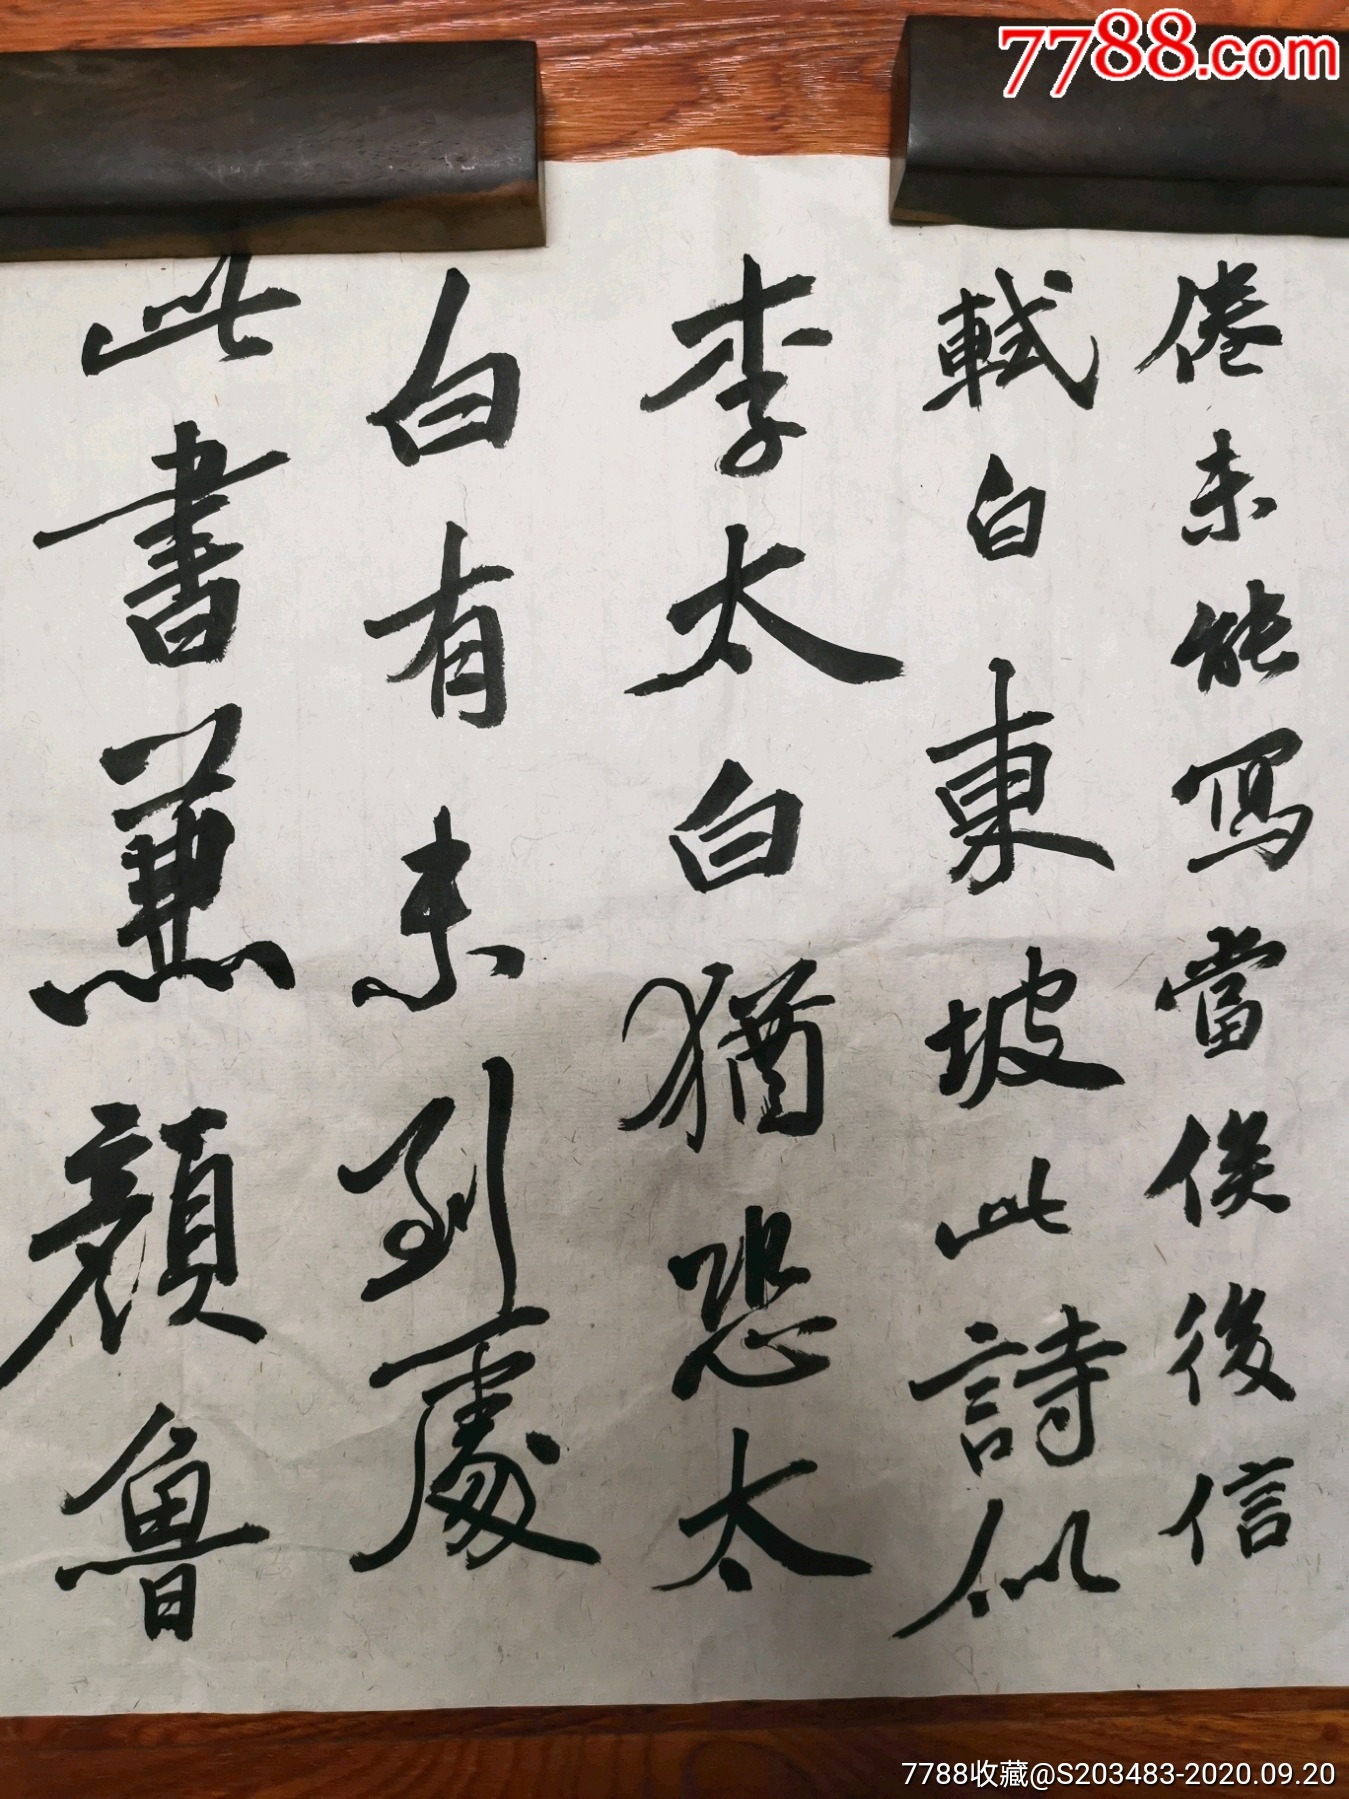 7788.com
倦未能寫當俟後信
軾白東坡此詩似
李太白猶恐太
白有未到處
此書兼顏魯
7788收藏@S203483-2020.09.20